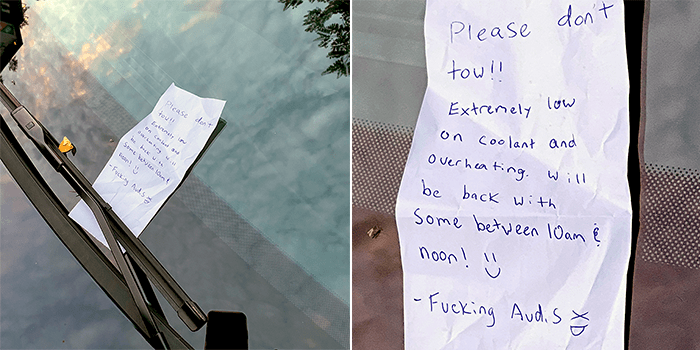 Please don't
tow!!
Extremely low
on coolant and
overheating. Will
be back with
some between 10am &
noon! :)
- Fucking Audis XD
Please don't
tow!!
Extremely low
on coolant and
overheating. Will
be back with
Some between 10am &
noon! :)
- Fucking Audis XD